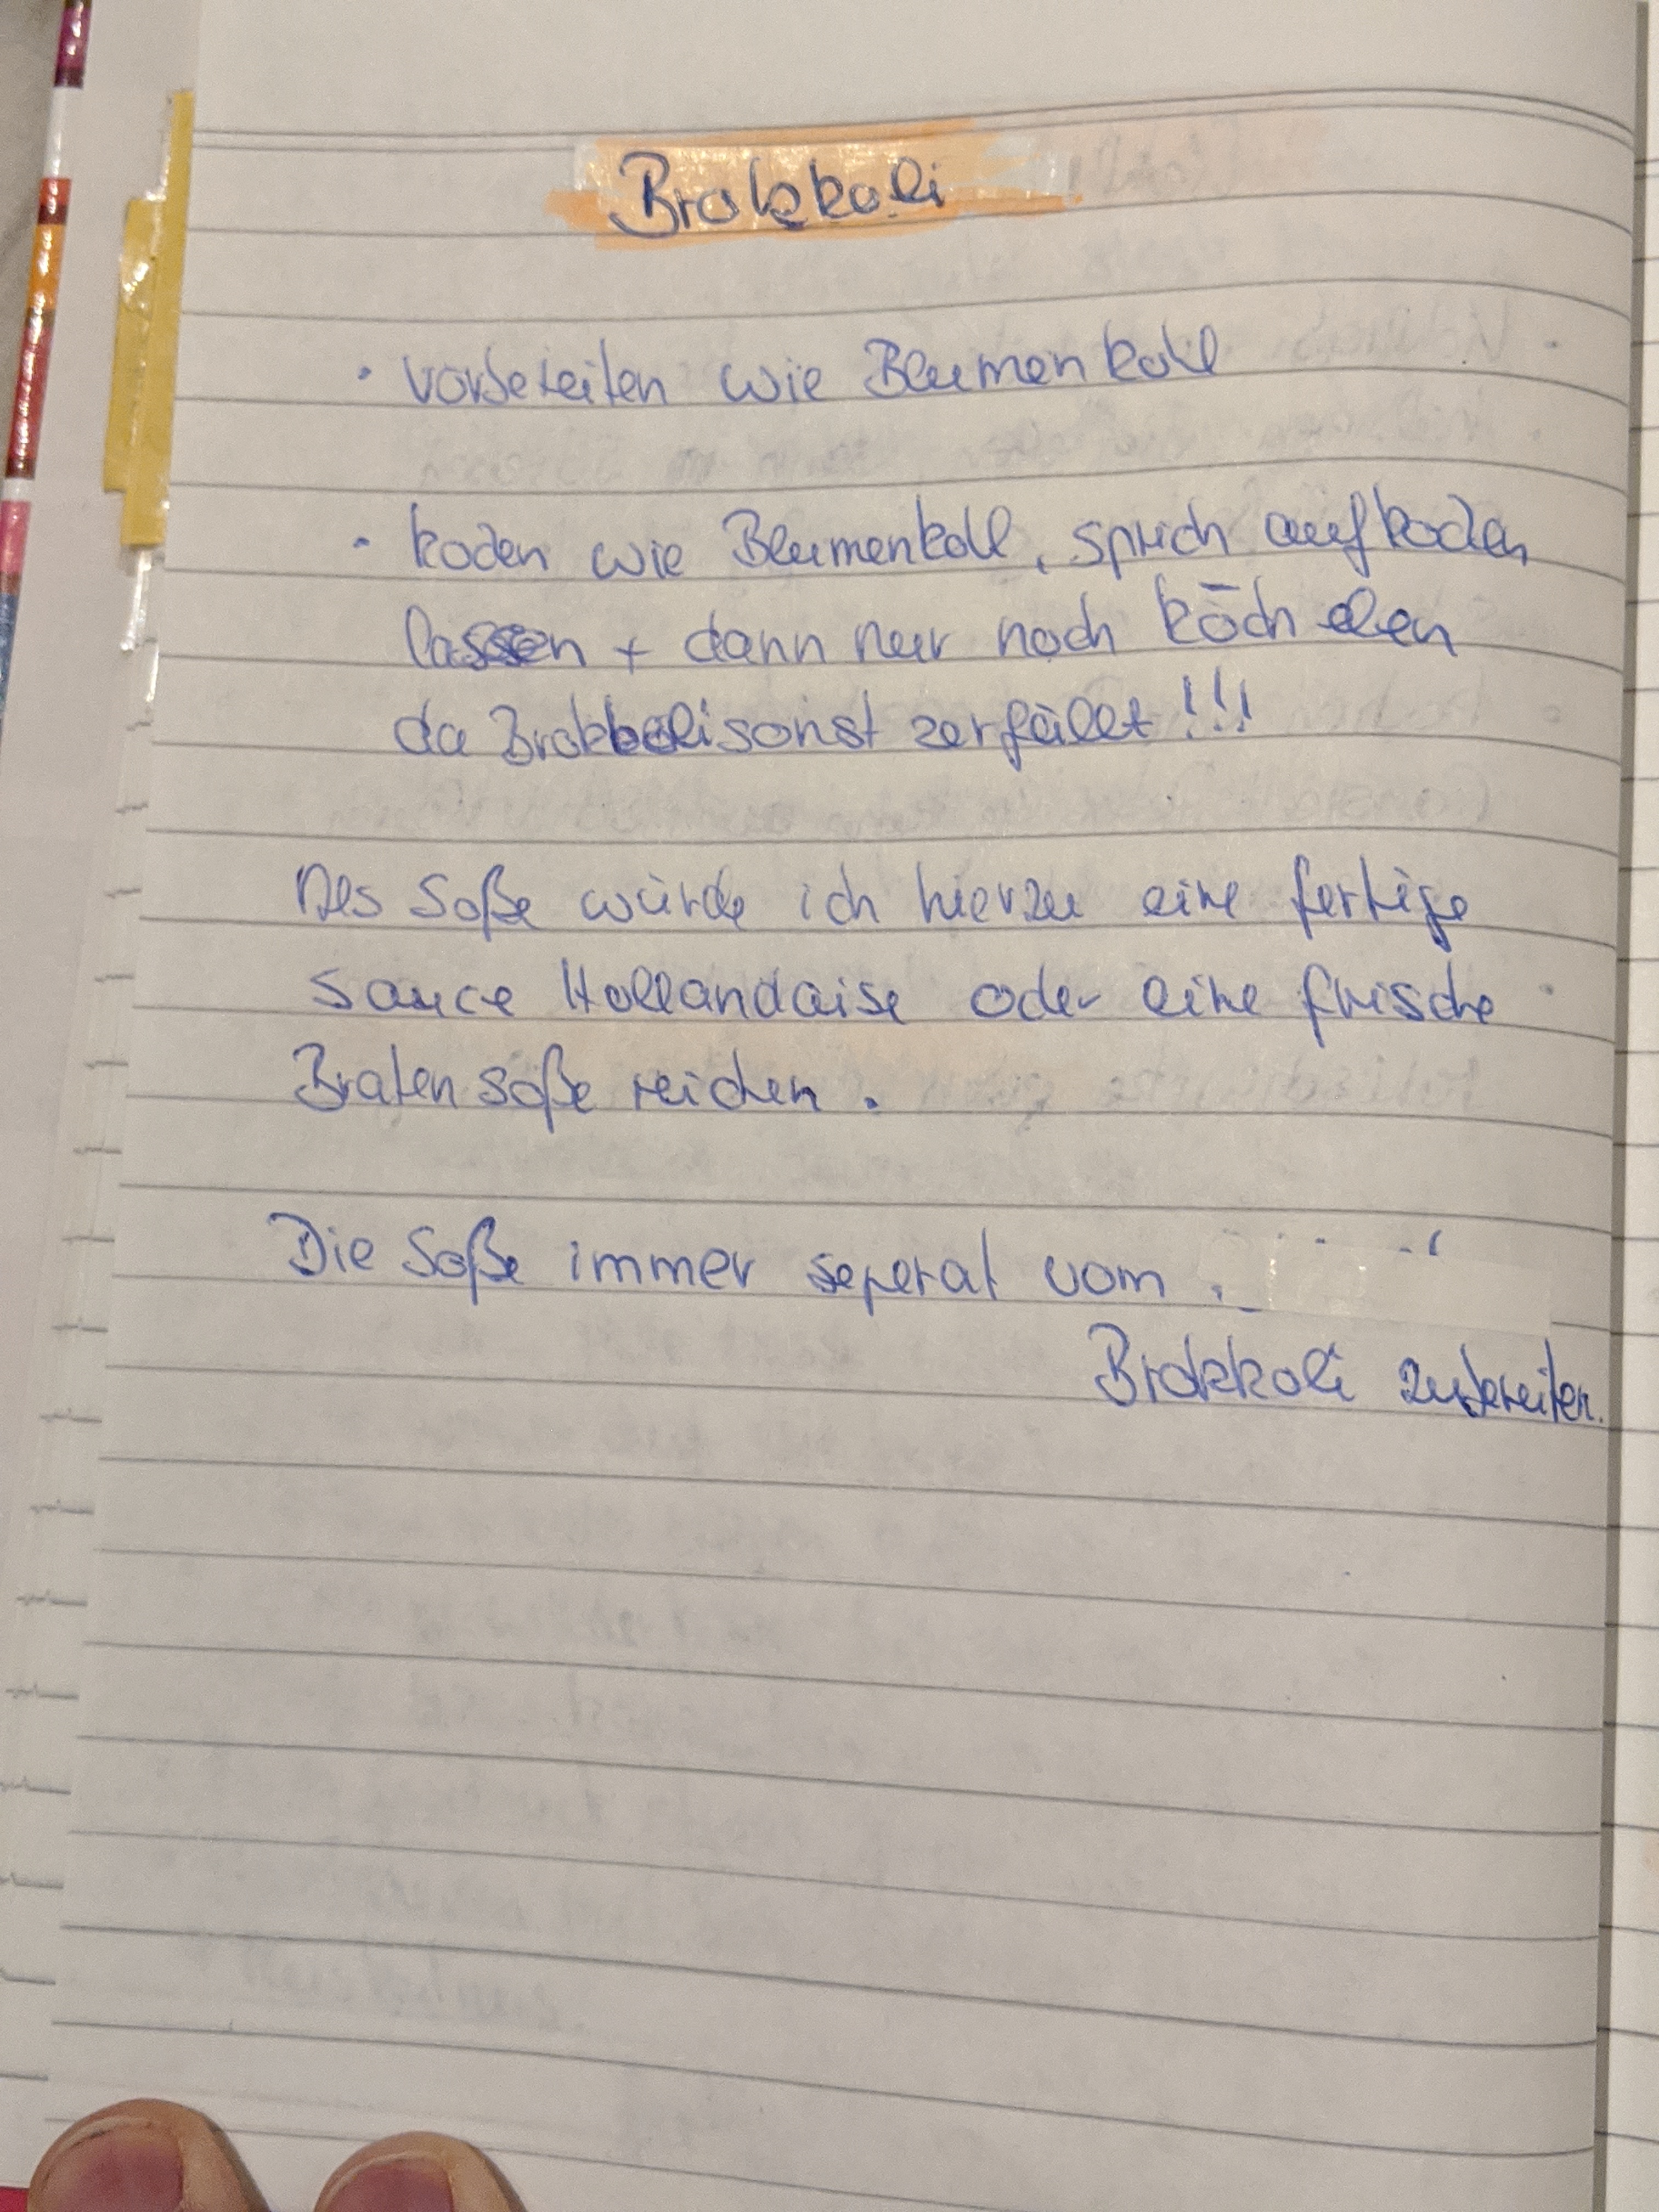 Brokkoli
· vorbereiten wie Blumenkohl
· kochen wie Blumenkohl, sprich aufkochen
lassen + dann nur noch köcheln
da Brokkoli sonst zerfällt!!!
Als Soße würde ich hierzu eine fertige
Sauce Hollandaise oder eine frische
Bratensoße reichen.
Die Soße immer seperat vom
Brokkoli zubereiten.